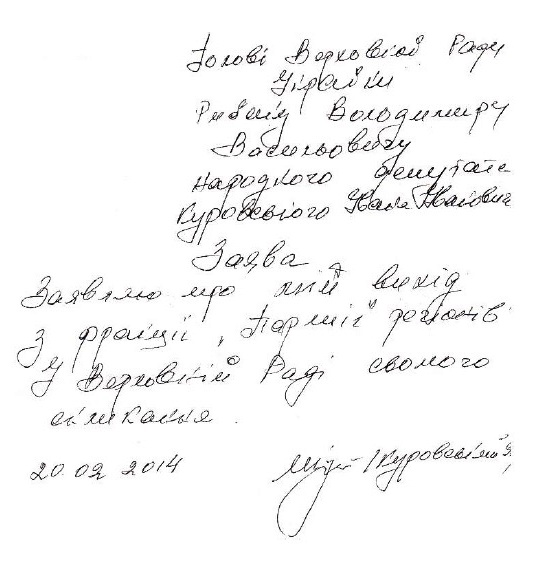 Голові Верховної Ради
України
Рибаку Володимиру
Васильовичу
народного депутата
Куровського Івана Івановича
Заява
Заявляю про мій вихід
з фракції "Партії регіонів"
у Верховній Раді сьомого
скликання.
20.02 2014 /Куровський І.І.